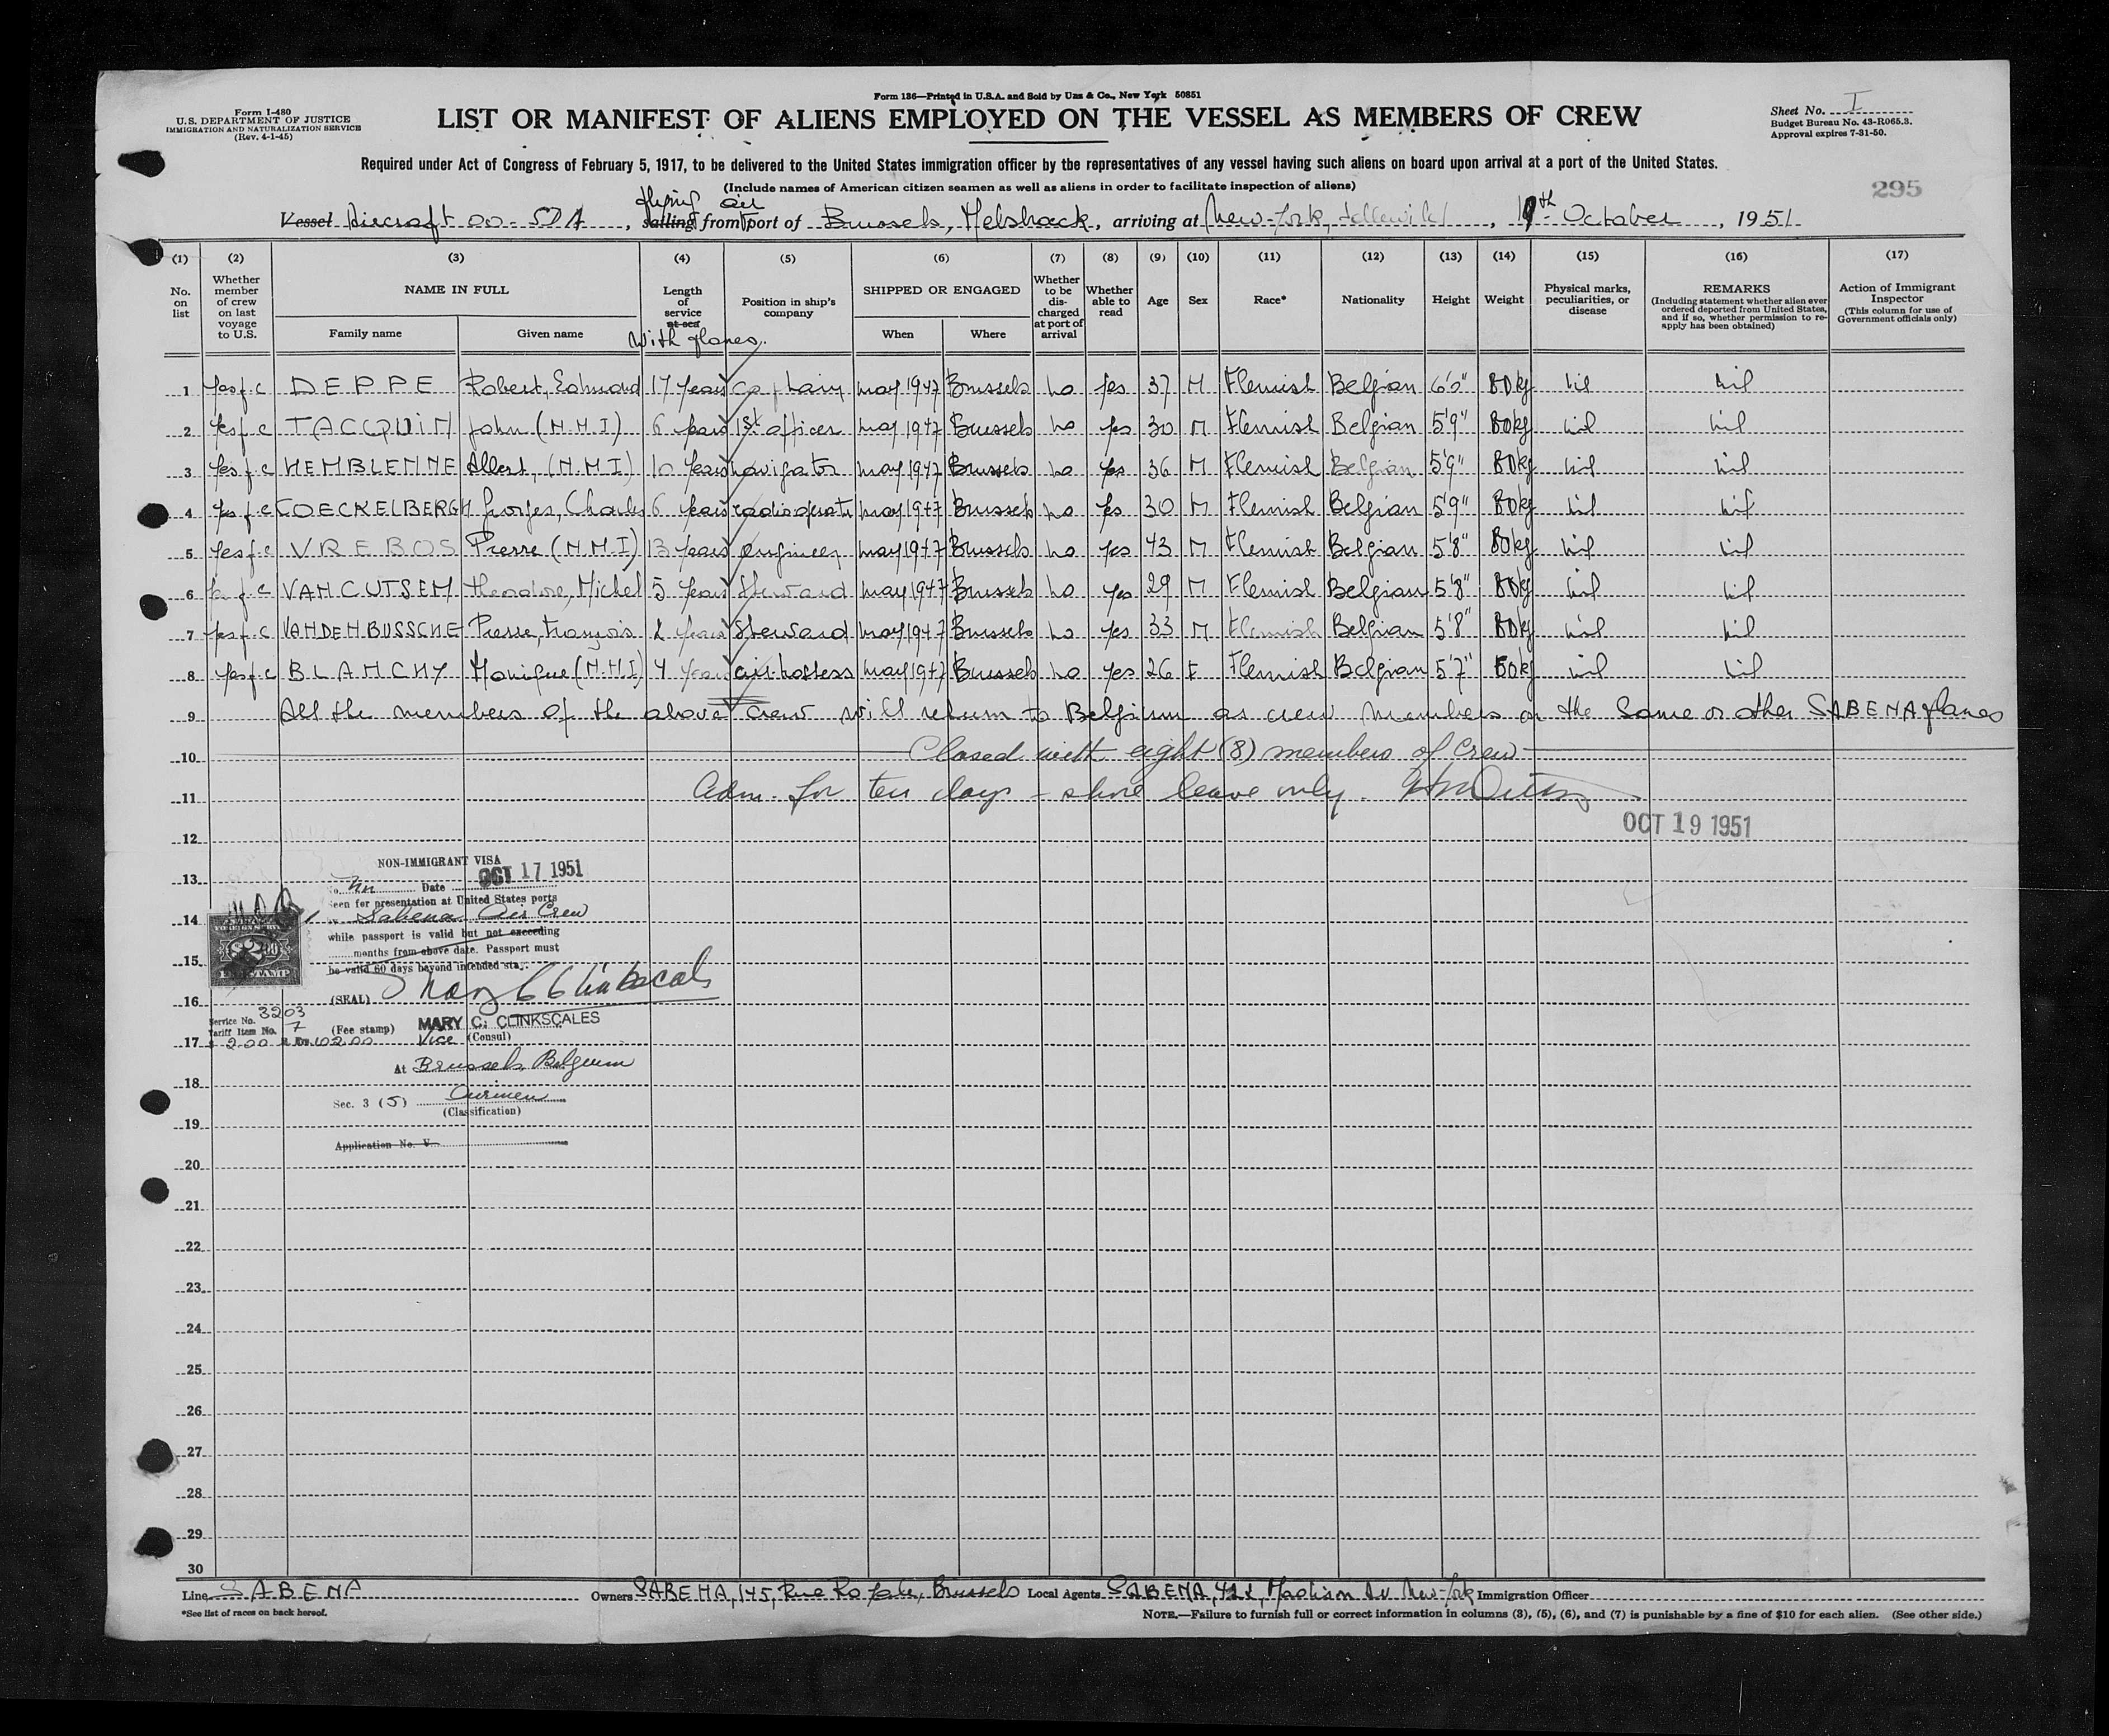 Form 186—Printed in U.S.A. and Sold by Unz & Co., New York 50851
Form I-480
U.S. DEPARTMENT OF JUSTICE
IMMIGRATION AND NATURALIZATION SERVICE
(Rev. 4-1-45)
LIST OR MANIFEST OF ALIENS EMPLOYED ON THE VESSEL AS MEMBERS OF CREW
Sheet No. I
Budget Bureau No. 43-R065.3.
Approval expires 7-31-50.
Required under Act of Congress of February 5, 1917, to be delivered to the United States immigration officer by the representatives of any vessel having such aliens on board upon arrival at a port of the United States.
(Include names of American citizen seamen as well as aliens in order to facilitate inspection of aliens)
295
flying air
Vessel Aircraft OO-SDA, sailing from port of Brussels, Melsbroek, arriving at New-York, Idlewild, 19th October, 1951
(1) (2) (3) (4) (5) (6) (7) (8) (9) (10) (11) (12) (13) (14) (15) (16) (17)
No. on list
Whether member of crew on last voyage to U.S.
NAME IN FULL
Family name
Given name
Length of service at sea
with planes
Position in ship's company
SHIPPED OR ENGAGED
When
Where
Whether to be discharged at port of arrival
Whether able to read
Age
Sex
Race*
Nationality
Height
Weight
Physical marks, peculiarities, or disease
REMARKS
(Including statement whether alien ever ordered deported from United States, and if so, whether permission to reapply has been obtained)
Action of Immigrant Inspector
(This column for use of Government officials only)
1 Yes f.c DEPPE Robert, Edmond 17 years captain may 1947 Brussels no yes 37 M Flemish Belgian 6'0" 80kg nil nil
2 Yes f.c TACQUIN John (N.M.I) 6 years 1st officer may 1947 Brussels no yes 30 M Flemish Belgian 5'9" 80kg nil nil
3 Yes f.c HEMBLENNE Albert, (N.M.I) 10 years navigator may 1947 Brussels no yes 36 M Flemish Belgian 5'9" 80kg nil nil
4 Yes f.c COECKELBERGH Georges, Charles 6 years radiooperator may 1947 Brussels no yes 30 M Flemish Belgian 5'9" 80kg nil nil
5 Yes f.c VREBOS Pierre (N.M.I) 13 years engineer may 1947 Brussels no yes 43 M Flemish Belgian 5'8" 80kg nil nil
6 Yes f.c VANCUTSEM Theodore, Michel 5 years Steward may 1947 Brussels no yes 29 M Flemish Belgian 5'8" 80kg nil nil
7 Yes f.c VANDENBUSSCHE Pierre, François 2 years Steward may 1947 Brussels no yes 33 M Flemish Belgian 5'8" 80kg nil nil
8 Yes f.c BLANCHY Monique (N.M.I) 4 years air-hostess may 1947 Brussels no yes 26 F Flemish Belgian 5'7" 50kg nil nil
9 All the members of the above crew will return to Belgium as crew members on the same or other SABENA planes
10 Closed with eight (8) members of crew
11 Adm. for ten days - shore leave only.
OCT 19 1951
12
13
14
15
16
17
18
19
20
21
22
23
24
25
26
27
28
29
30
NON-IMMIGRANT VISA
Date OCT 17 1951
Seen for presentation at United States ports
Sabena Air Crew
while passport is valid but not exceeding
months from above date. Passport must
be valid 60 days beyond intended stay.
$2.00
FEE STAMP
(SEAL) Mary C Clinkscales
Service No. 3203
Tariff Item No. 7
(Fee stamp) MARY C. CLINKSCALES
Vice (Consul)
At Brussels, Belgium
Sec. 3 (5) Airmen
(Classification)
Application No. V
Line SABENA Owners SABENA, 145, Rue Royale, Brussels Local Agents SABENA, 422, Madison Av New-York Immigration Officer
*See list of races on back hereof.
NOTE.—Failure to furnish full or correct information in columns (3), (5), (6), and (7) is punishable by a fine of $10 for each alien. (See other side.)